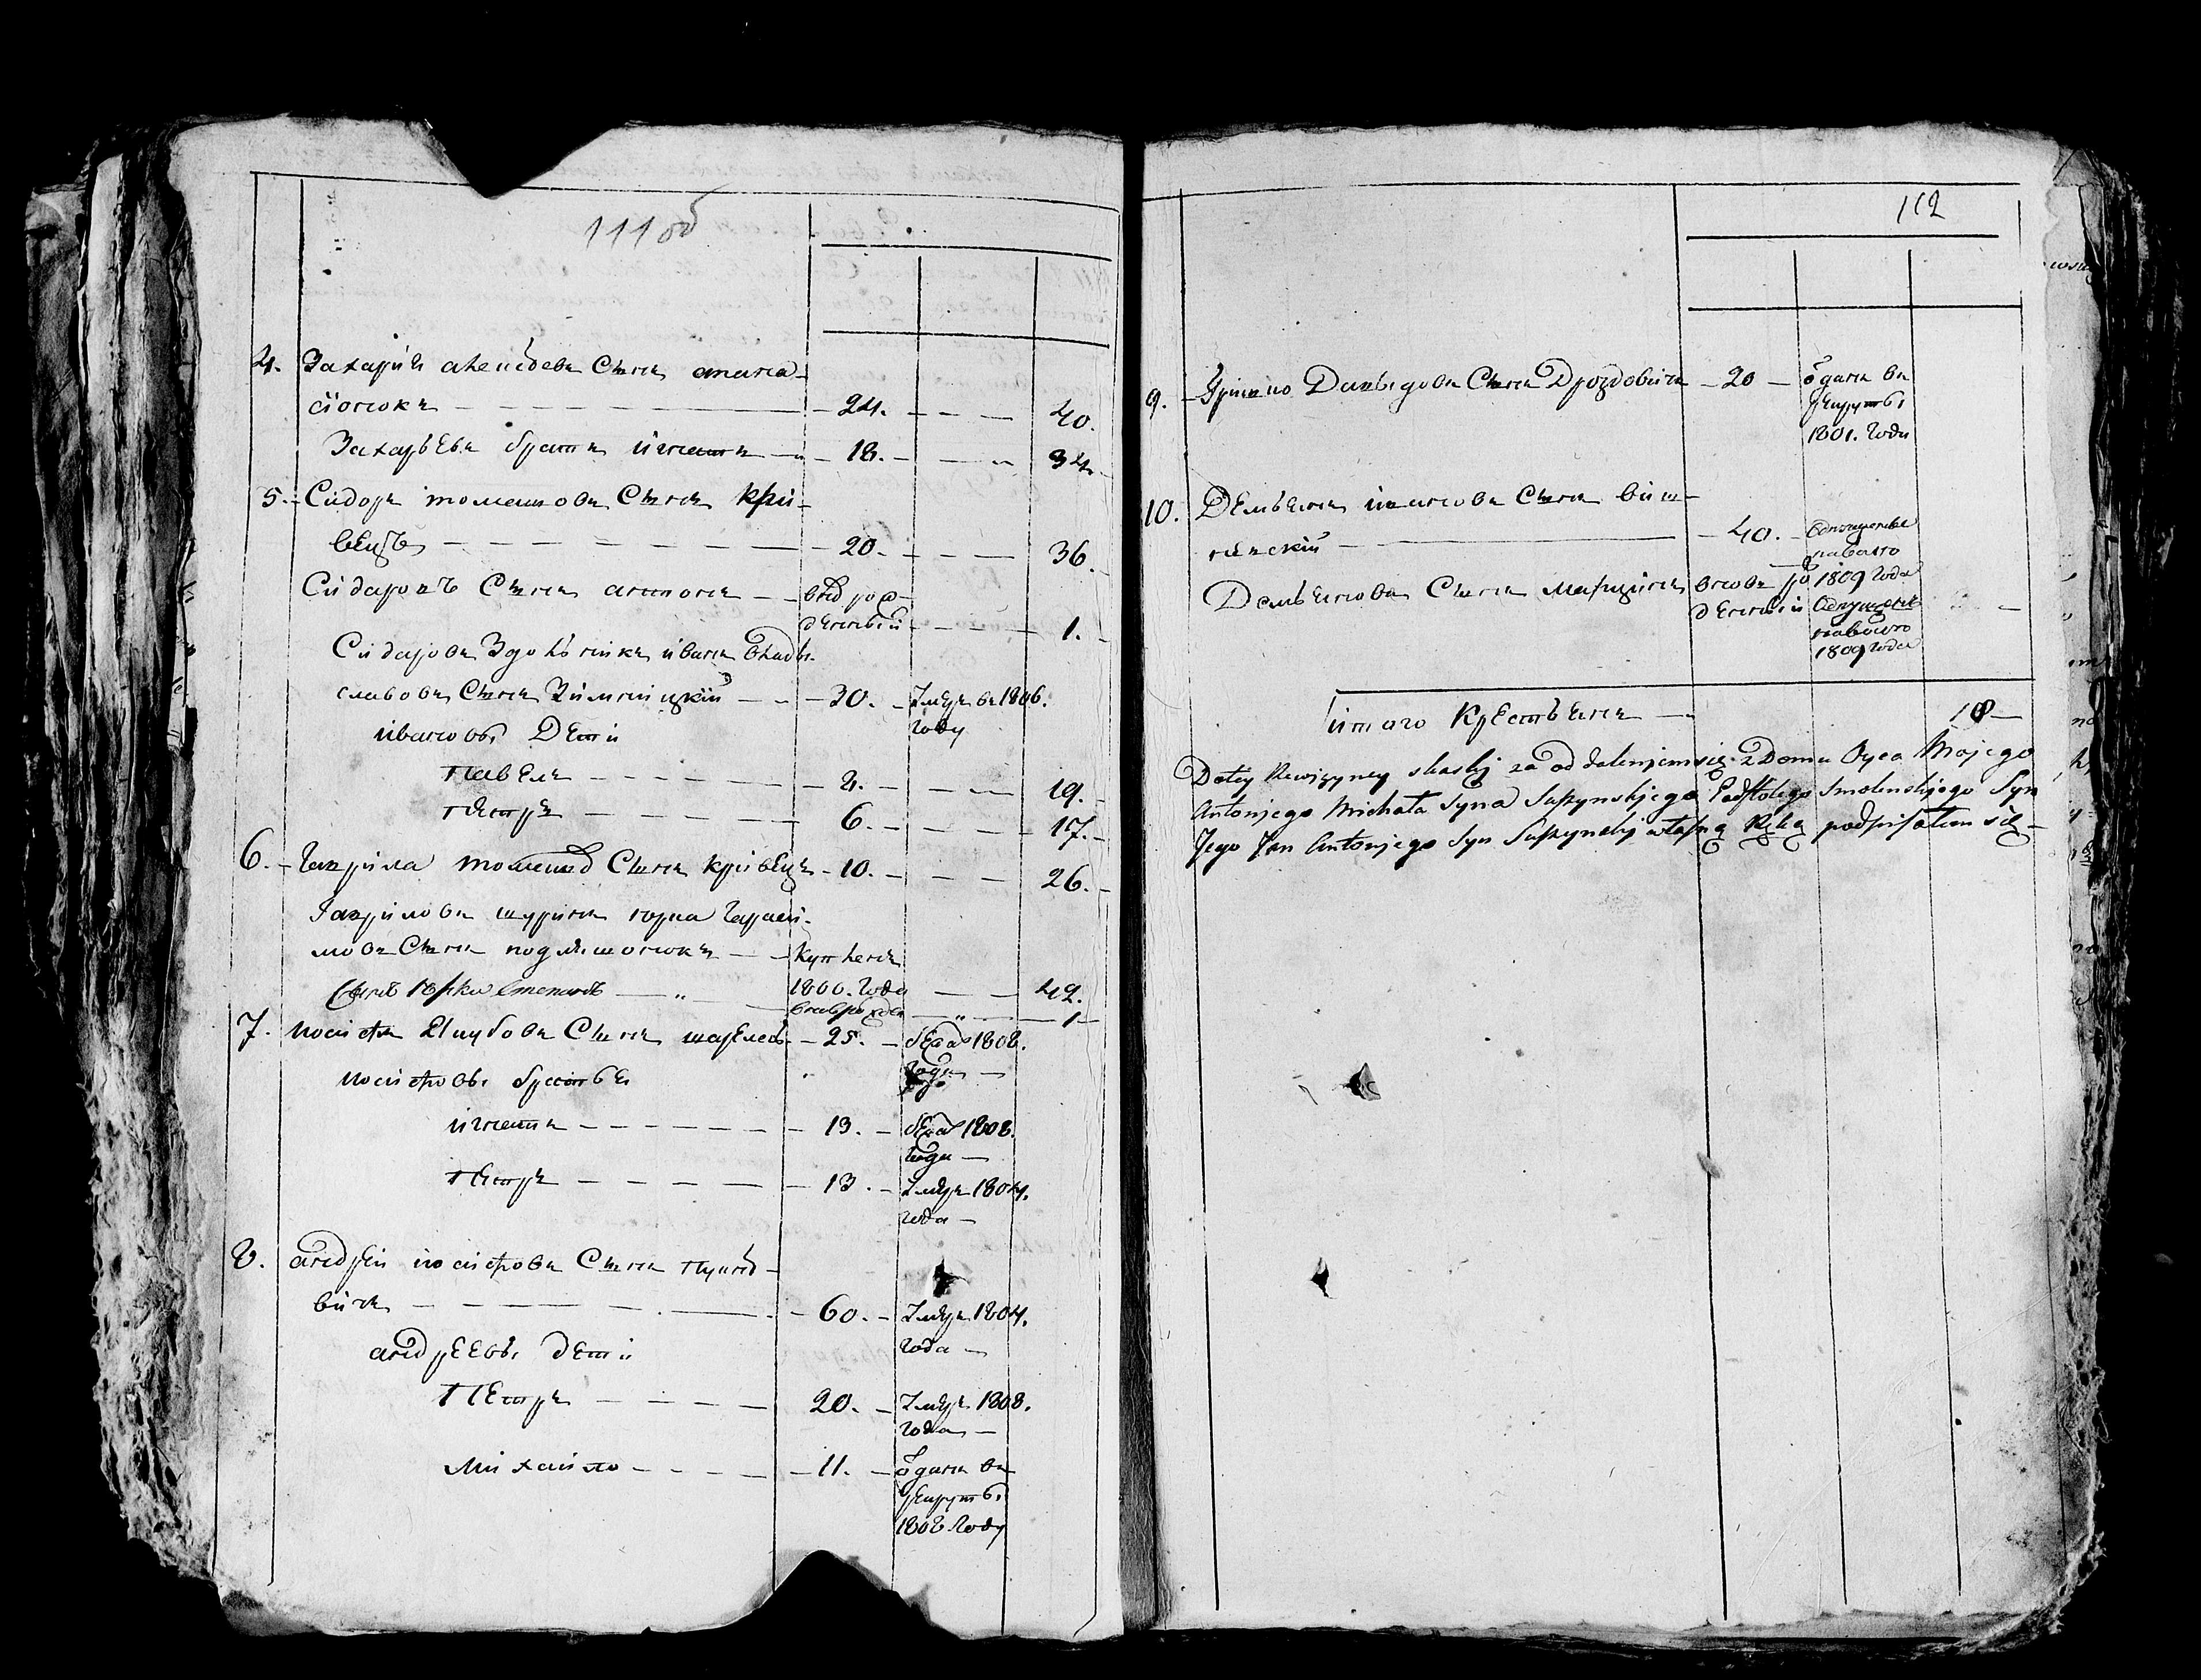 111 об
4. Захарiй алексеевъ Сынъ апана-
сіонокъ 24. 40.
Захарьевъ братъ игнатъ 18. 34.
5. Сидоръ томашовъ Сынъ кри-
вецъ 20. 36.
Сидаровъ Сынъ антонъ вновь рож-
денный 1.
Сидаровъ Здольникъ иванъ влади-
славовъ Сынъ Зимницкiй 30. Умеръ въ 1806.
ивановы Дети году
павелъ 19.
петръ 6. 17.
6. Гаврила томашовъ Сынъ кривецъ 10. 26.
Гавриловъ шуринъ юрка Гараси-
мовъ Сынъ подлишонокъ купленъ
Сынъ юрки Степанъ 1800. года 42.
вновь рожден 1
7. иосифъ Якубовъ Сынъ 25. бежалъ 1808.
иосифовы братья года
игнатъ 13. бежалъ 1808.
года
петръ 13. Умеръ 1804.
года
8. андрей иосифовъ Сынъ
вичъ 60. Умеръ 1804.
андреевы дети года
Петръ 20. Умеръ 1808.
года
Михайло 11. отданъ въ
рекруты
1808 году
112
9. Гришко Давыдовъ Сынъ Дроздовичъ 20 отданъ въ
рекруты
1801. года
10. Демьянъ ивановъ Сынъ виш-
невскiй 40. Отпущенъ
на волю
1809 года
Демьяновъ Сынъ Марцинъ вновь ро-
денный Отпущенъ
на волю
1809 года
итого Крестьянъ 18
Dotey Rewizyney skaski za oddalenjem się z Domu Oyca Mojego
Antonjego Michała Syna Suszynskjego Podstolego Smolenskjego Syn
Jego Jan Antonjego Syn Suszynskj własną Ręką podpisałem się